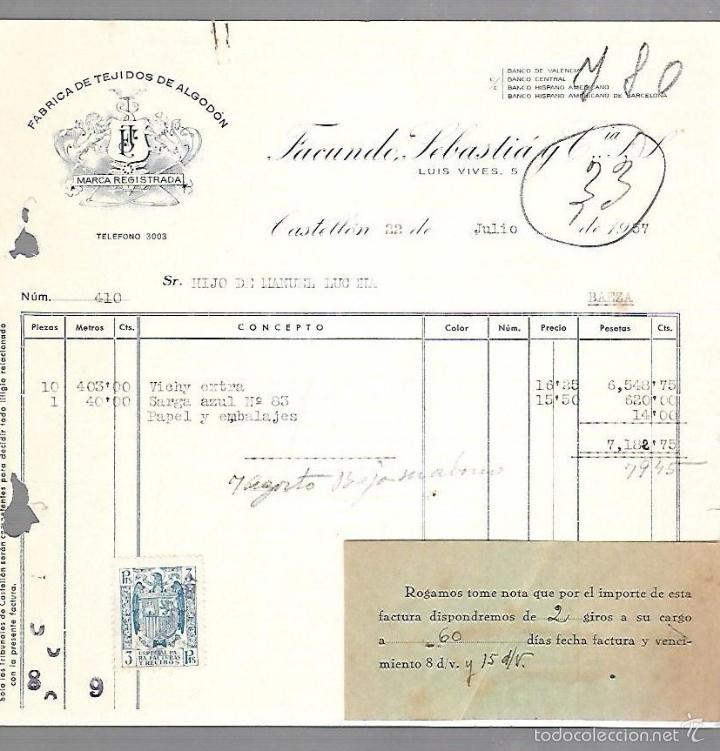 FABRICA DE TEJIDOS DE ALGODÓN
MARCA REGISTRADA
TELÉFONO 3003
BANCO DE VALENCIA
BANCO CENTRAL
BANCO HISPANO AMERICANO
BANCO HISPANO AMERICANO DE BARCELONA
780
Facundo Sebastiá y Cía. S.
LUIS VIVES, 5
33
Castellón 22 de Julio de 1957
Sr. HIJO DE MANUEL LUCENA
Núm. 410 BAEZA
Piezas Metros Cts. CONCEPTO Color Núm. Precio Pesetas Cts.
10 403'00 Vichy extra 16'25 6,548'75
1 40'00 Sarga azul Nº 83 15'50 620'00
Papel y embalajes 14'00
7,182'75
7 agosto
7945
Solo los Tribunales de Castellón serán competentes para decidir todo litigio relacionado
con la presente factura.
Pts 3
ESPECIAL PA
RA FACTURAS
Y RECIBOS
3 Pts
Rogamos tome nota que por el importe de esta
factura dispondremos de 2 giros a su cargo
a 60 días fecha factura y venci-
miento 8 d/v. y 15 d/v.
8 9
todocoleccion.net